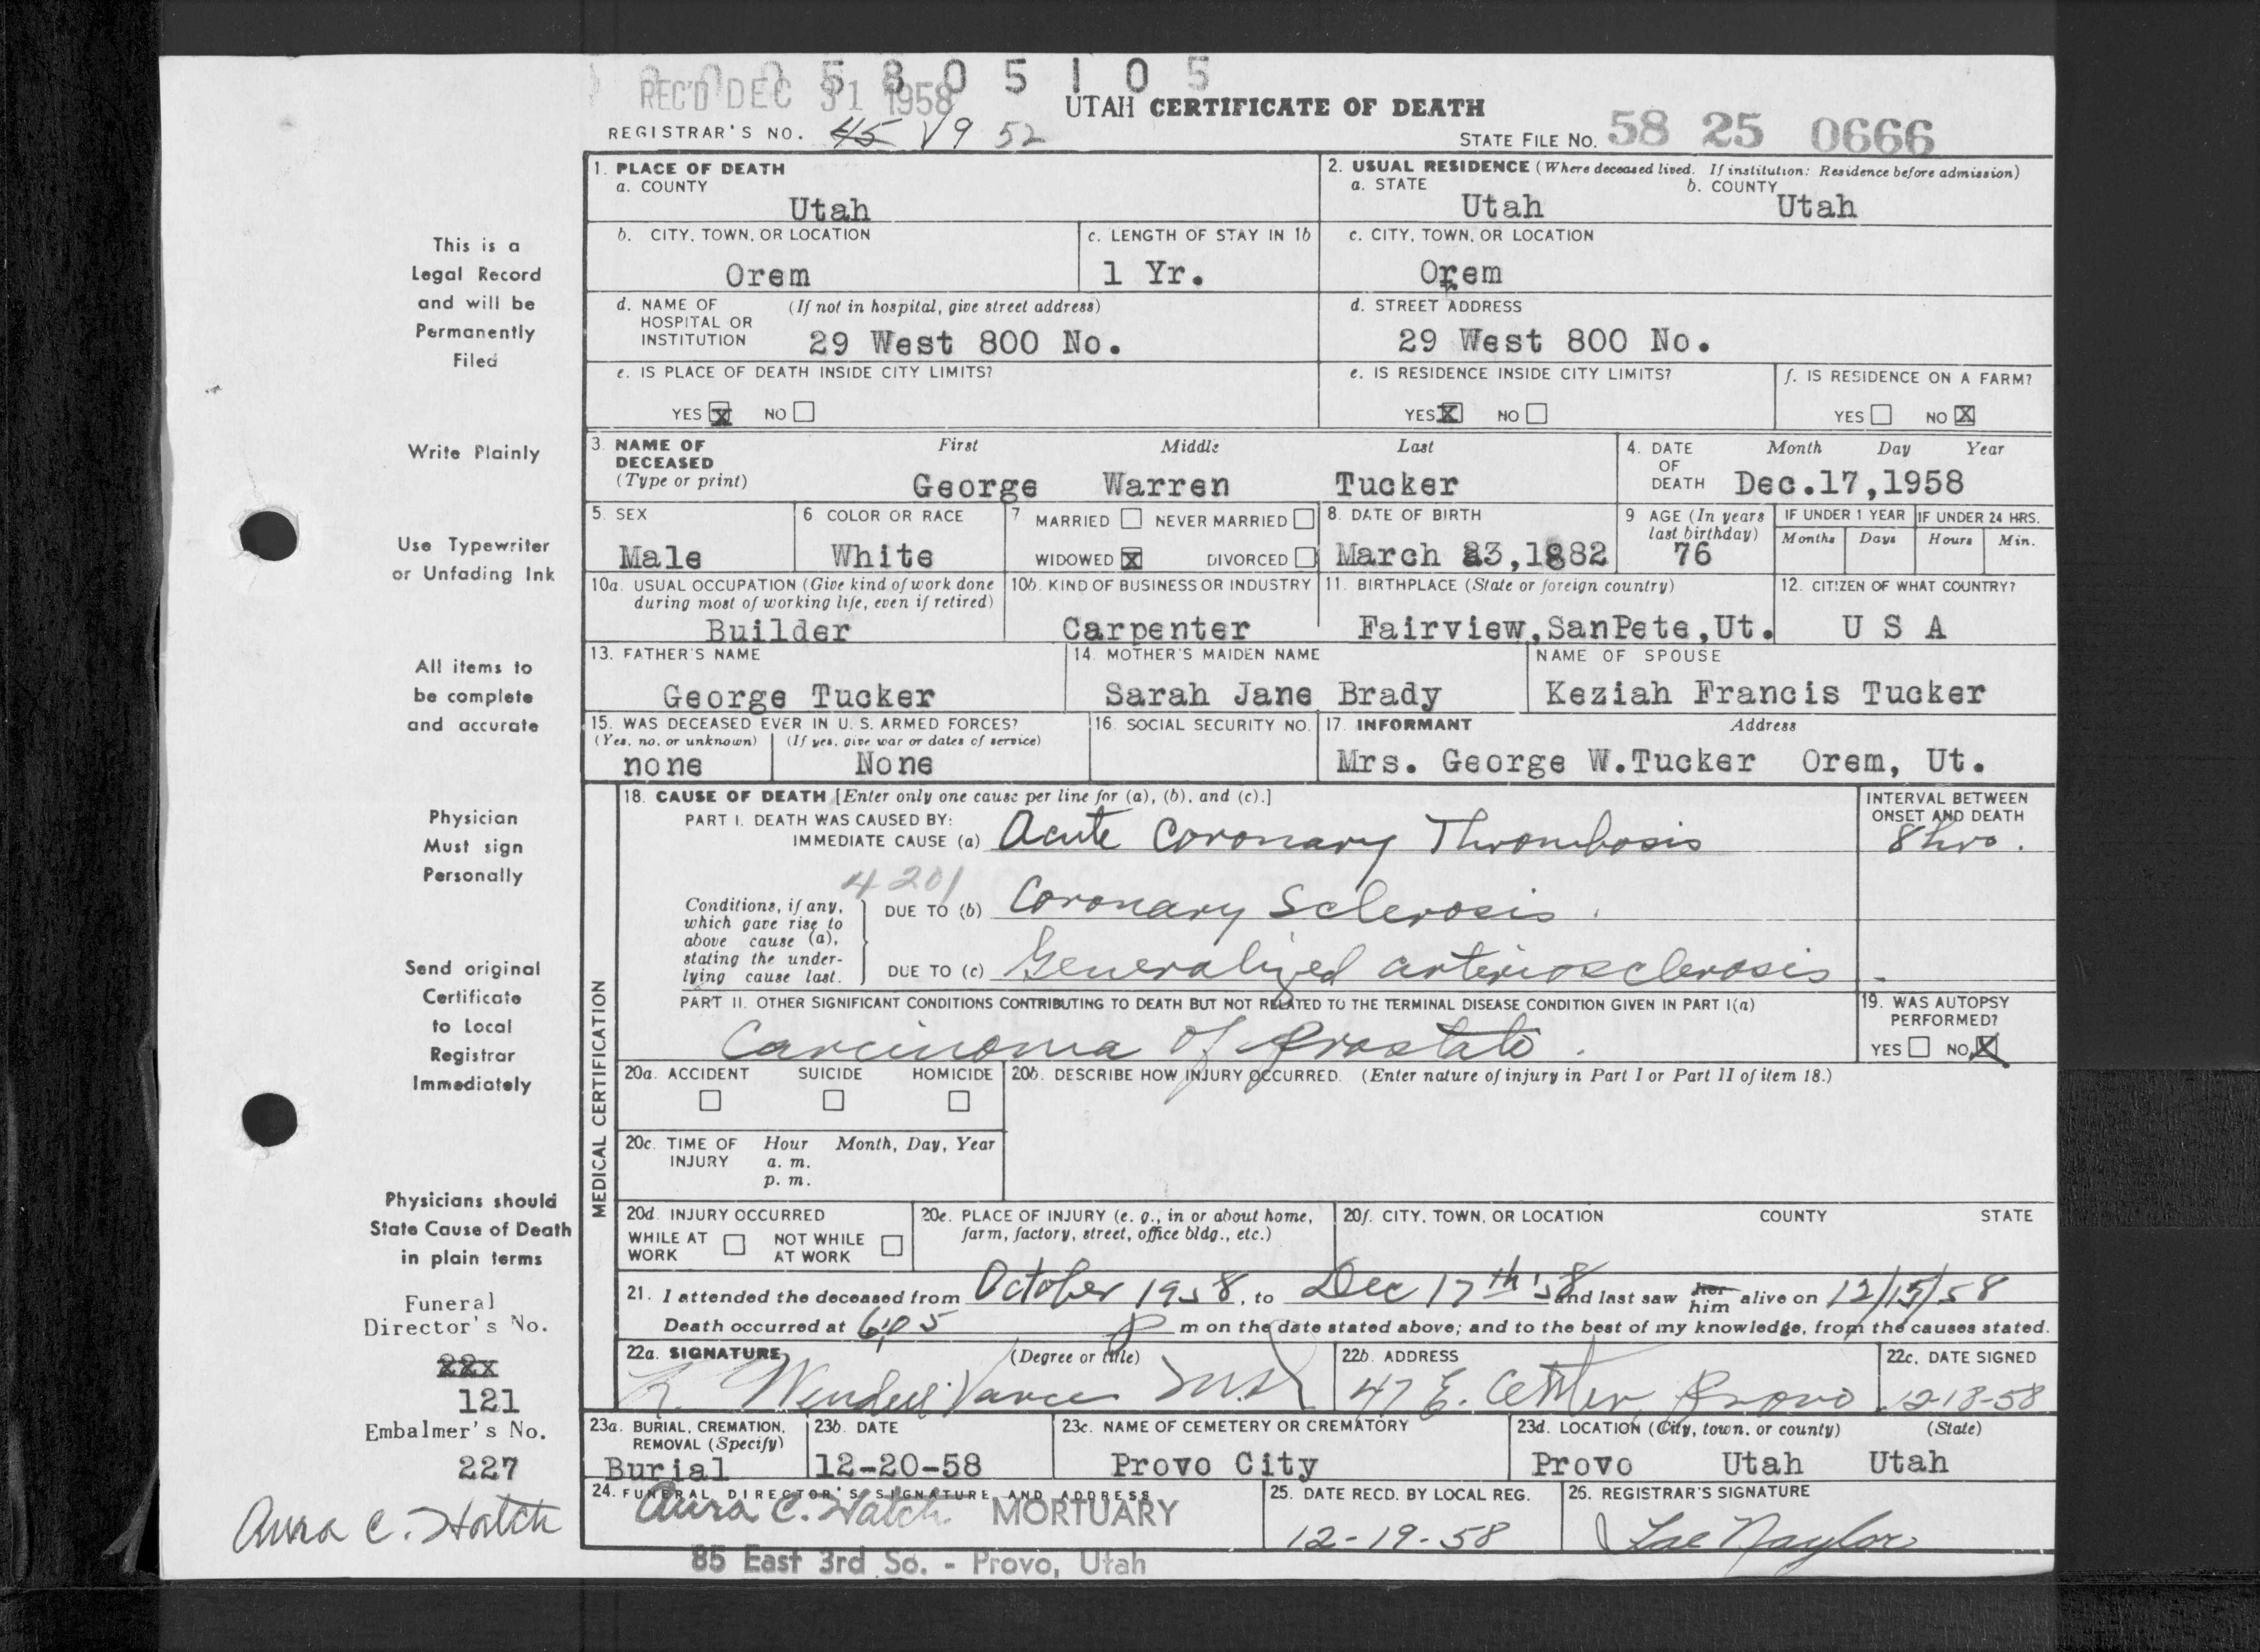 REC'D DEC 31 1958
5 8 0 5 1 0 5
UTAH CERTIFICATE OF DEATH
REGISTRAR'S NO. 45 V9 52
STATE FILE NO. 58 25 0666
1. PLACE OF DEATH
a. COUNTY
Utah
2. USUAL RESIDENCE (Where deceased lived. If institution: Residence before admission)
a. STATE b. COUNTY
Utah Utah
b. CITY, TOWN, OR LOCATION
Orem
c. LENGTH OF STAY IN 1b
1 Yr.
c. CITY, TOWN, OR LOCATION
Orem
d. NAME OF (If not in hospital, give street address)
HOSPITAL OR
INSTITUTION 29 West 800 No.
d. STREET ADDRESS
29 West 800 No.
e. IS PLACE OF DEATH INSIDE CITY LIMITS?
YES X NO
e. IS RESIDENCE INSIDE CITY LIMITS?
YES X NO
f. IS RESIDENCE ON A FARM?
YES NO X
3. NAME OF First Middle Last
DECEASED
(Type or print) George Warren Tucker
4. DATE Month Day Year
OF
DEATH Dec.17,1958
5. SEX
Male
6 COLOR OR RACE
White
7 MARRIED NEVER MARRIED
WIDOWED X DIVORCED
8. DATE OF BIRTH
March 23,1882
9 AGE (In years
last birthday)
76
IF UNDER 1 YEAR
Months Days
IF UNDER 24 HRS.
Hours Min.
10a. USUAL OCCUPATION (Give kind of work done
during most of working life, even if retired)
Builder
10b. KIND OF BUSINESS OR INDUSTRY
Carpenter
11. BIRTHPLACE (State or foreign country)
Fairview,SanPete,Ut.
12. CITIZEN OF WHAT COUNTRY?
U S A
13. FATHER'S NAME
George Tucker
14. MOTHER'S MAIDEN NAME
Sarah Jane Brady
NAME OF SPOUSE
Keziah Francis Tucker
15. WAS DECEASED EVER IN U. S. ARMED FORCES?
(Yes, no, or unknown) (If yes, give war or dates of service)
none None
16. SOCIAL SECURITY NO.
17. INFORMANT Address
Mrs. George W.Tucker Orem, Ut.
MEDICAL CERTIFICATION
18. CAUSE OF DEATH [Enter only one cause per line for (a), (b), and (c).]
PART I. DEATH WAS CAUSED BY:
IMMEDIATE CAUSE (a) Acute Coronary Thrombosis
INTERVAL BETWEEN
ONSET AND DEATH
8 hrs.
4201
Conditions, if any,
which gave rise to
above cause (a),
stating the under-
lying cause last.
DUE TO (b) Coronary Sclerosis.
DUE TO (c) Generalized arteriosclerosis
PART II. OTHER SIGNIFICANT CONDITIONS CONTRIBUTING TO DEATH BUT NOT RELATED TO THE TERMINAL DISEASE CONDITION GIVEN IN PART I(a)
Carcinoma of Prostate.
19. WAS AUTOPSY
PERFORMED?
YES NO X
20a. ACCIDENT SUICIDE HOMICIDE
20b. DESCRIBE HOW INJURY OCCURRED. (Enter nature of injury in Part I or Part II of item 18.)
20c. TIME OF Hour Month, Day, Year
INJURY a. m.
p. m.
20d. INJURY OCCURRED
WHILE AT NOT WHILE
WORK AT WORK
20e. PLACE OF INJURY (e. g., in or about home,
farm, factory, street, office bldg., etc.)
20f. CITY, TOWN, OR LOCATION COUNTY STATE
21. I attended the deceased from October 1958, to Dec 17th '58 and last saw her him alive on 12/15/58
Death occurred at 6:05 P m on the date stated above; and to the best of my knowledge, from the causes stated.
22a. SIGNATURE (Degree or title)
Wendell Vance M.D.
22b. ADDRESS
47 E. Center, Provo
22c. DATE SIGNED
12-18-58
23a. BURIAL, CREMATION,
REMOVAL (Specify)
Burial
23b. DATE
12-20-58
23c. NAME OF CEMETERY OR CREMATORY
Provo City
23d. LOCATION (City, town, or county) (State)
Provo Utah Utah
24. FUNERAL DIRECTOR'S SIGNATURE AND ADDRESS
Aura C. Hatch MORTUARY
85 East 3rd So. - Provo, Utah
25. DATE RECD. BY LOCAL REG.
12-19-58
26. REGISTRAR'S SIGNATURE
Naylor
This is a
Legal Record
and will be
Permanently
Filed
Write Plainly
Use Typewriter
or Unfading Ink
All items to
be complete
and accurate
Physician
Must sign
Personally
Send original
Certificate
to Local
Registrar
Immediately
Physicians should
State Cause of Death
in plain terms
Funeral
Director's No.
22x
121
Embalmer's No.
227
Aura C. Hatch